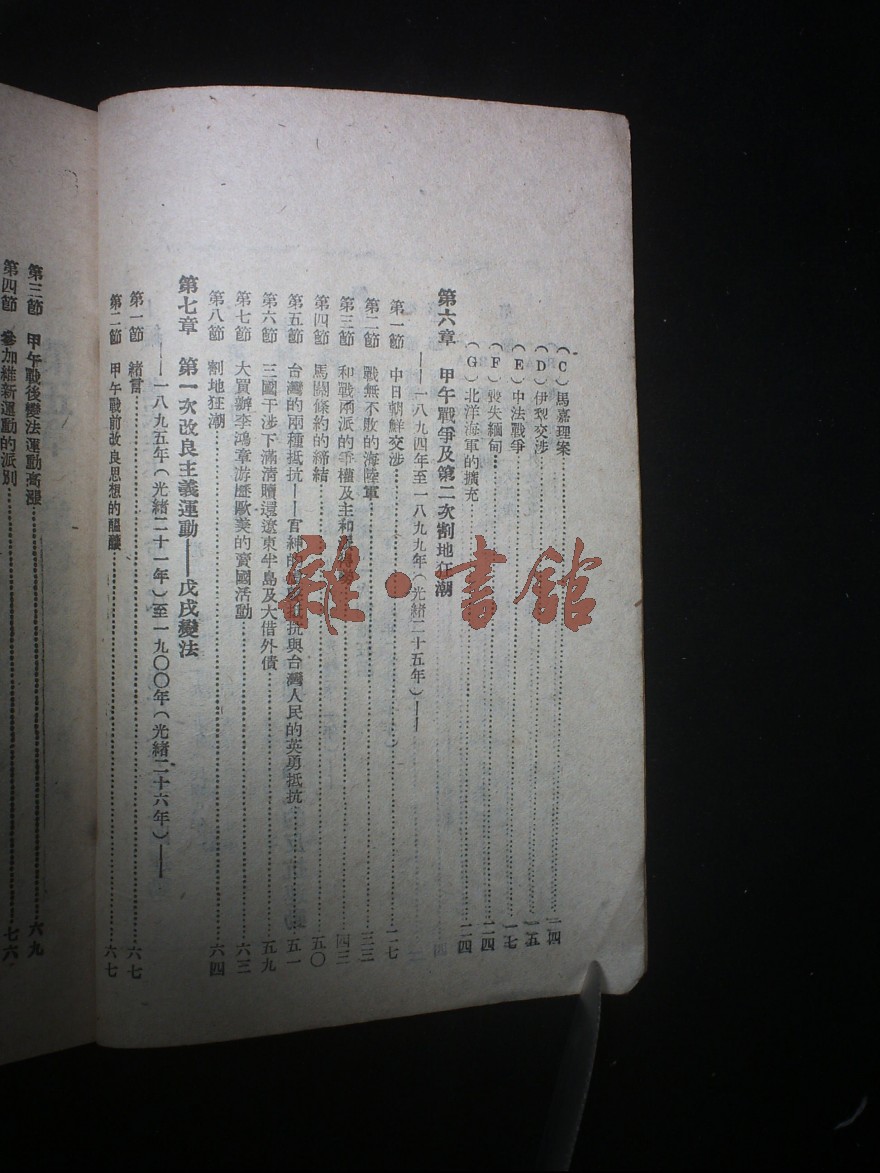 （C）馬嘉理案……一四
（D）伊犁交涉……一五
（E）中法戰爭……一七
（F）喪失緬甸……二四
（G）北洋海軍的擴充……二四
第六章　甲午戰爭及第二次割地狂潮
——一八九四年至一八九九年（光緒二十五年）——
第一節　中日朝鮮交涉……二七
第二節　戰無不敗的海陸軍……三三
第三節　和戰兩派的爭權及主和……四三
第四節　馬關條約的締結……五〇
第五節　台灣的兩種抵抗——官紳的抵抗與台灣人民的英勇抵抗……五一
第六節　三國干涉下滿清贖還遼東半島及大借外債……五九
第七節　大買辦李鴻章游歷歐美的賣國活動……六三
第八節　割地狂潮……六四
第七章　第一次改良主義運動——戊戌變法
——一八九五年（光緒二十一年）至一九〇〇年（光緒二十六年）——
第一節　緒言……六七
第二節　甲午戰前改良思想的醞釀……六七
第三節　甲午戰後變法運動高漲……六九
第四節　參加維新運動的派別……七六
雜·書館